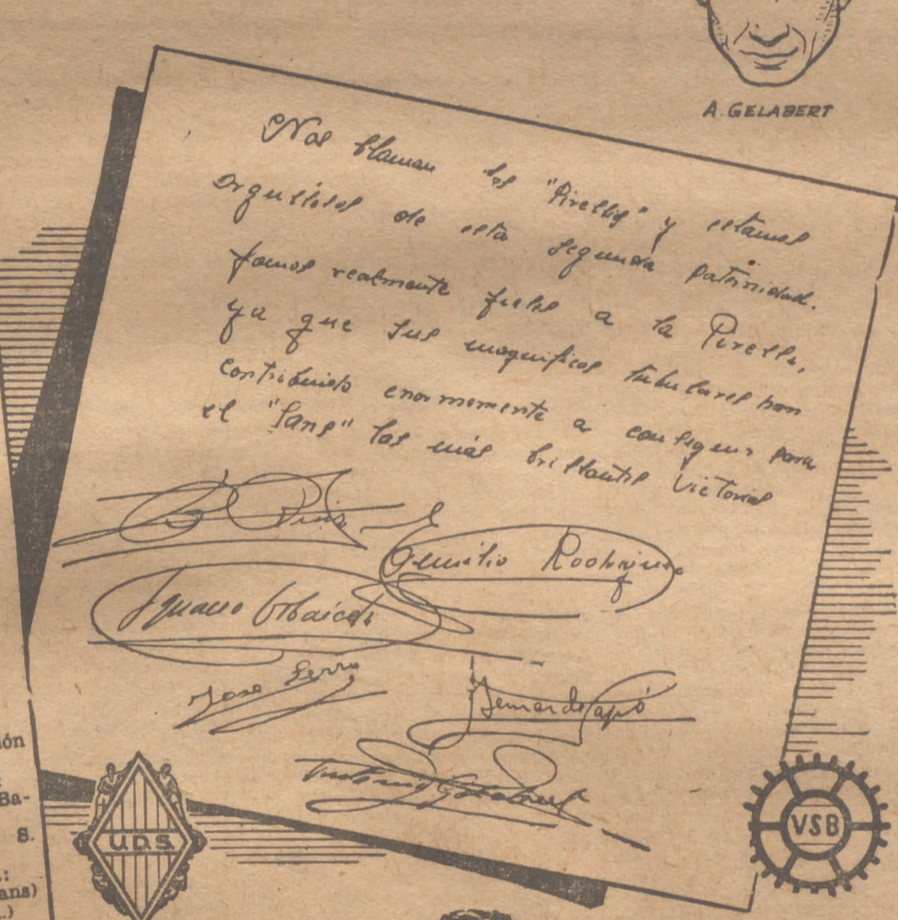 A. GELABERT
Nos llaman los "Pirellis" y estamos
orgullosos de esta segunda paternidad.
Somos realmente fieles a la Pirelli,
ya que sus magníficos tubulares han
contribuido enormemente a conseguir para
el "Sans" las más brillantes victorias
Emilio Rodríguez
Ignacio Orbaiceta
Jose Serra
Bernardo Capó
Antonio Gelabert
ión
Ba-
S.
:
ans)
.)
U.D.S.
VSB